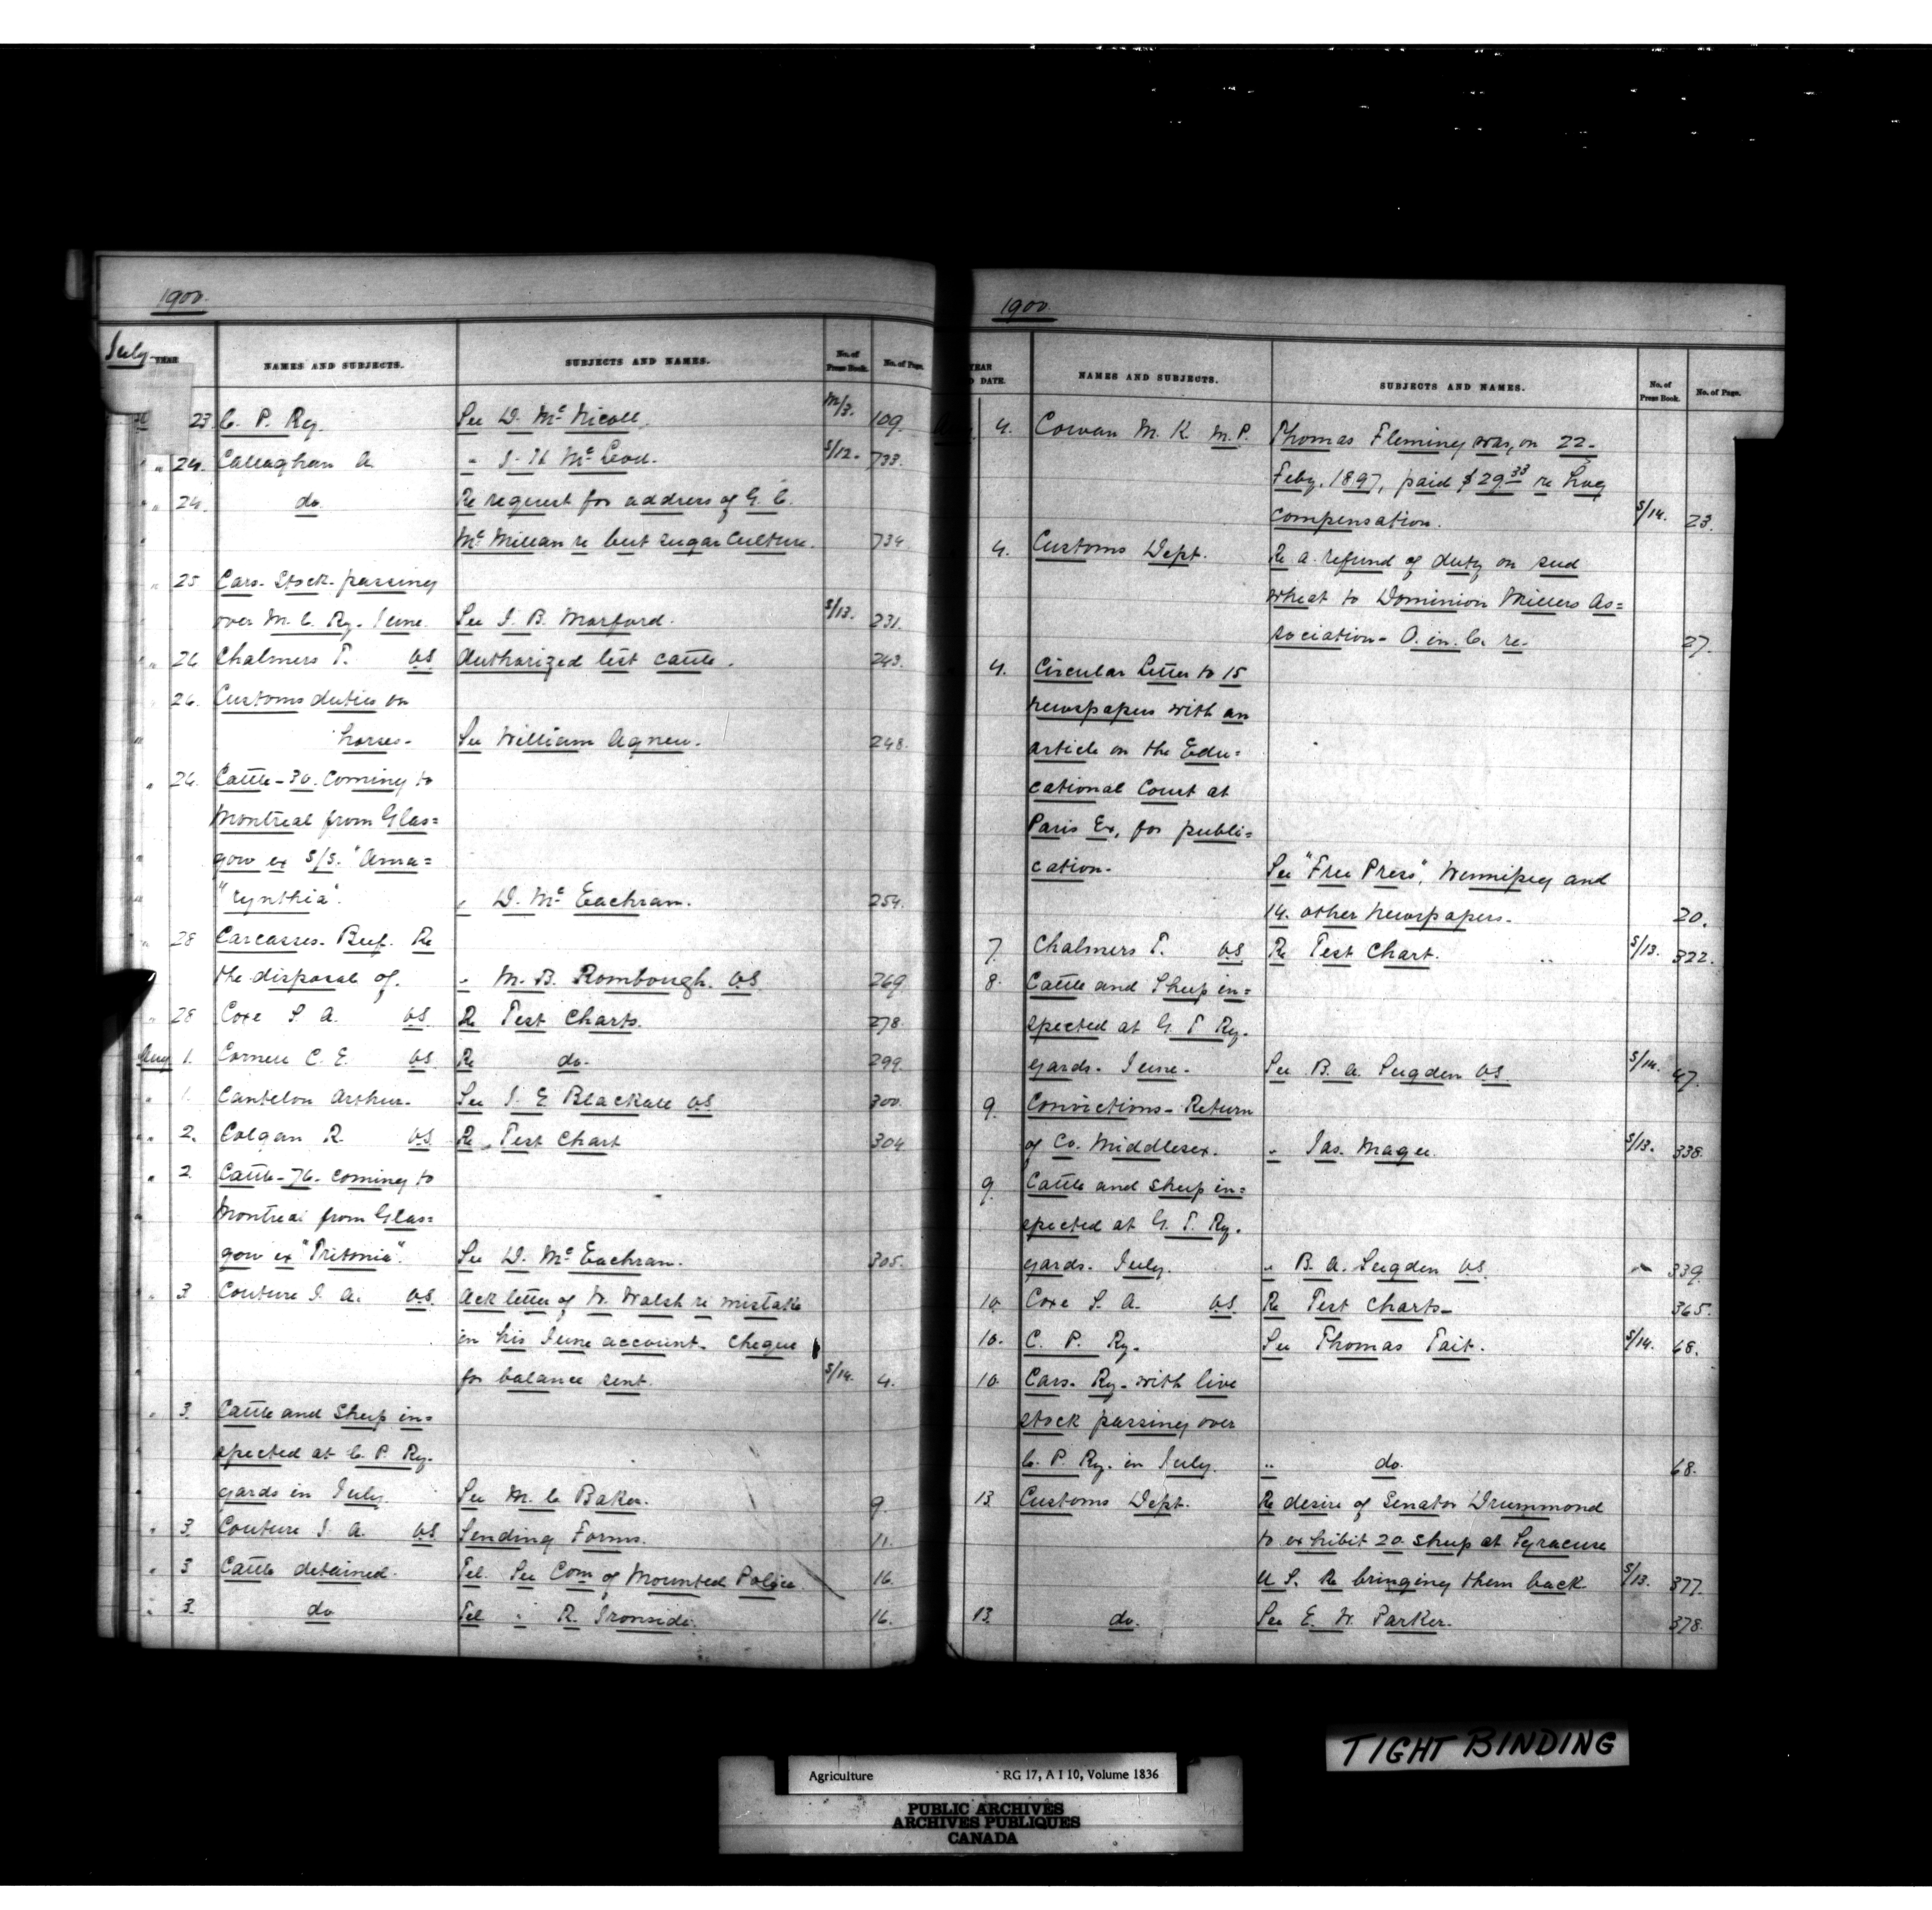 1900.
July YEAR NAMES AND SUBJECTS. SUBJECTS AND NAMES. No. of Press Book. No. of Page.
23. C. P. Ry. See D. McNicoll. M/3. 109.
" 24. Callaghan A. " J. H. McLeod. S/12. 733.
" 24. do. Re request for address of G. C.
McMillan re beet sugar culture. 734.
" 25 Cars- Stock- passing
over M. C. Ry. June. See J. B. Morford. S/13. 231.
" 26 Chalmers T. VS Authorized test cattle. 243.
26. Customs duties on
" horses- See William Agnew. 248.
" 26. Cattle-30. coming to
Montreal from Glas=
" gow ex S/S. "Ama=
" "rynthia". " D. McEachran. 254.
" 28 Carcasses. Beef. Re
the disposal of. " M. B. Rombough. VS 269.
" 28 Coxe S. A. VS. Re Test Charts. 278.
Aug 1. Cornell C. E. VS. Re do. 299.
" 1. Cantelon Arthur. See J. E. Blackall VS 300.
" 2. Colgan R. VS. Re Test Chart 304
" 2 Cattle-76- coming to
Montreal from Glas=
gow ex "Tritonia". See D. McEachran. 305.
" 3 Couture J. A. VS. Ack letter of W. Walsh re mistake
in his June account. Cheque
for balance sent. S/14. 4.
" 3. Cattle and Sheep in=
spected at C. P. Ry.
yards in July. See M. C. Baker. 9
" 3. Couture J. A. VS Sending Forms. 11.
" 3 Cattle detained. Tel. See Com of Mounted Police. 16.
" 3. do Tel " R. Ironside. 16.
1900.
YEAR DATE. NAMES AND SUBJECTS. SUBJECTS AND NAMES. No. of Press Book. No. of Page.
4. Cowan M. K. M.P. Thomas Fleming was, on 22-
Feby. 1897, paid $29.33 re hog
compensation. S/14. 23.
4. Customs Dept. Re a refund of duty on seed
wheat to Dominion Millers As=
sociation- O. in. C. re. 27.
4. Circular Letter to 15
newspapers with an
article on the Edu=
cational Court at
Paris Ex, for publi=
cation. See "Free Press", Winnipeg and
14. other newspapers. 20.
7. Chalmers T. VS. Re Test Chart. S/13. 322.
8. Cattle and Sheep in=
spected at G. T. Ry.
yards- June. See B. A. Sugden VS. S/14. 47.
9. Convictions- Return
of Co. Middlesex. " Jas. Magee. S/13. 338.
9. Cattle and sheep in=
spected at G. T. Ry.
yards. July. " B. A. Sugden VS. 339.
10. Coxe S. A. VS. Re Test Charts- 365.
10. C. P. Ry. See Thomas Tait. S/14. 68.
10 Cars. Ry. with live
stock passing over
C. P. Ry. in July. " do. 68.
13 Customs Dept. Re desire of Senator Drummond
to exhibit 20 sheep at Syracuse
U S. Re bringing them back S/13. 377.
13. do. See E. W. Parker. 378.
TIGHT BINDING
Agriculture RG 17, A I 10, Volume 1836
PUBLIC ARCHIVES
ARCHIVES PUBLIQUES
CANADA